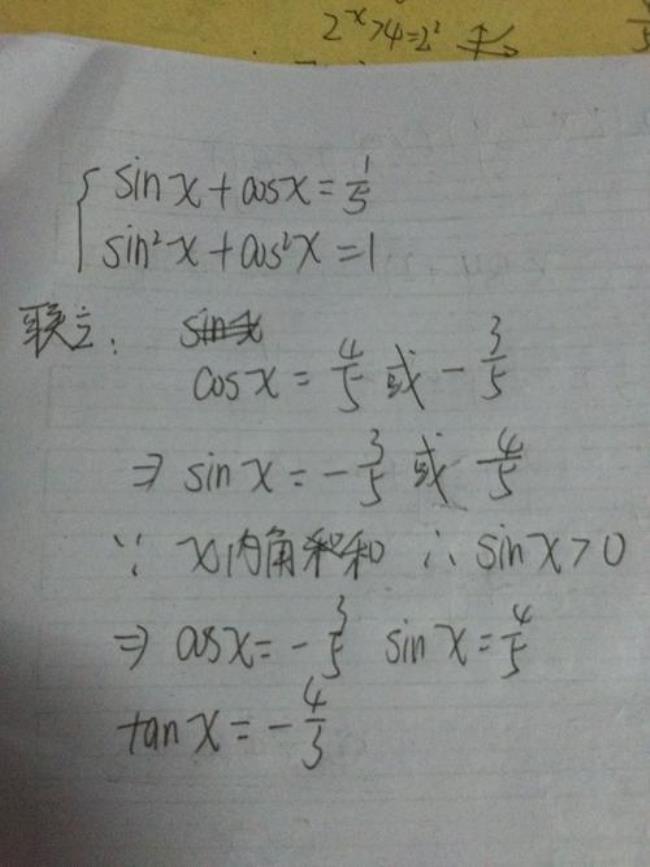 2ˣ>4=2²
sinx+cosx=1/5
sin²x+cos²x=1
联立: sinx
cosx=4/5或-3/5
⇒sinx=-3/5或4/5
∵ x内角和 ∴sinx>0
⇒cosx=-3/5 sinx=4/5
tanx=-4/3